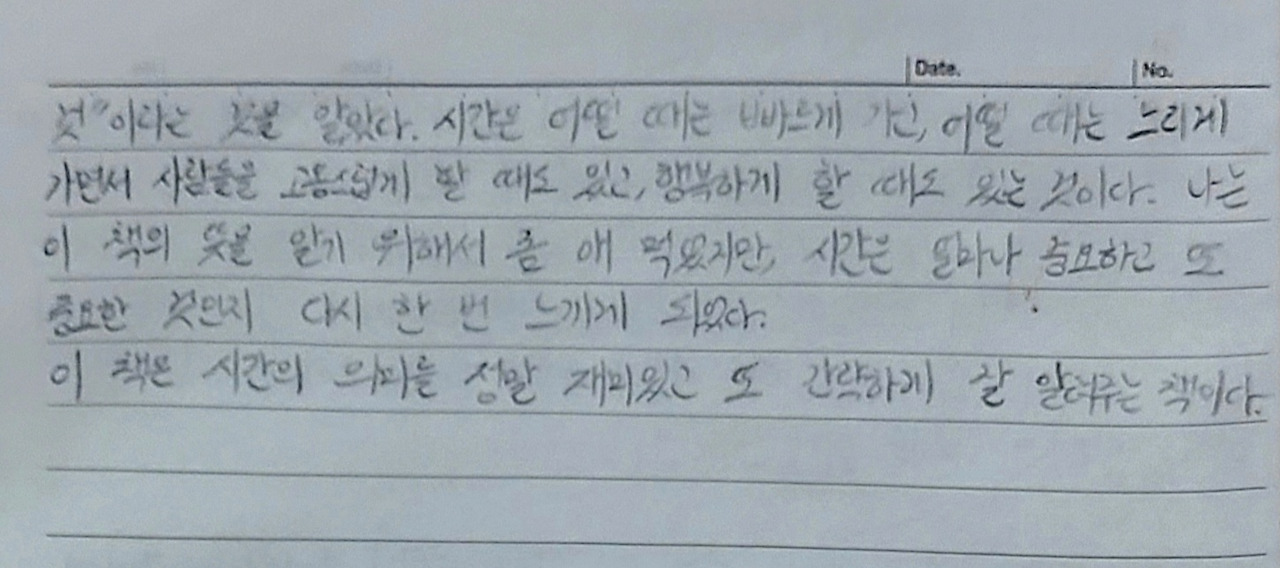 Date. No.
것"이라는 뜻을 알았다. 시간은 어떨 때는 빠르게 가고, 어떨 때는 느리게
가면서 사람들을 고통스럽게 할 때도 있고, 행복하게 할 때도 있는 것이다. 나는
이 책의 뜻을 알기 위해서 좀 애 먹었지만, 시간은 얼마나 중요하고 또
중요한 것인지 다시 한 번 느끼게 되었다.
이 책은 시간의 의미를 정말 재미있고 또 간략하게 잘 알려주는 책이다.